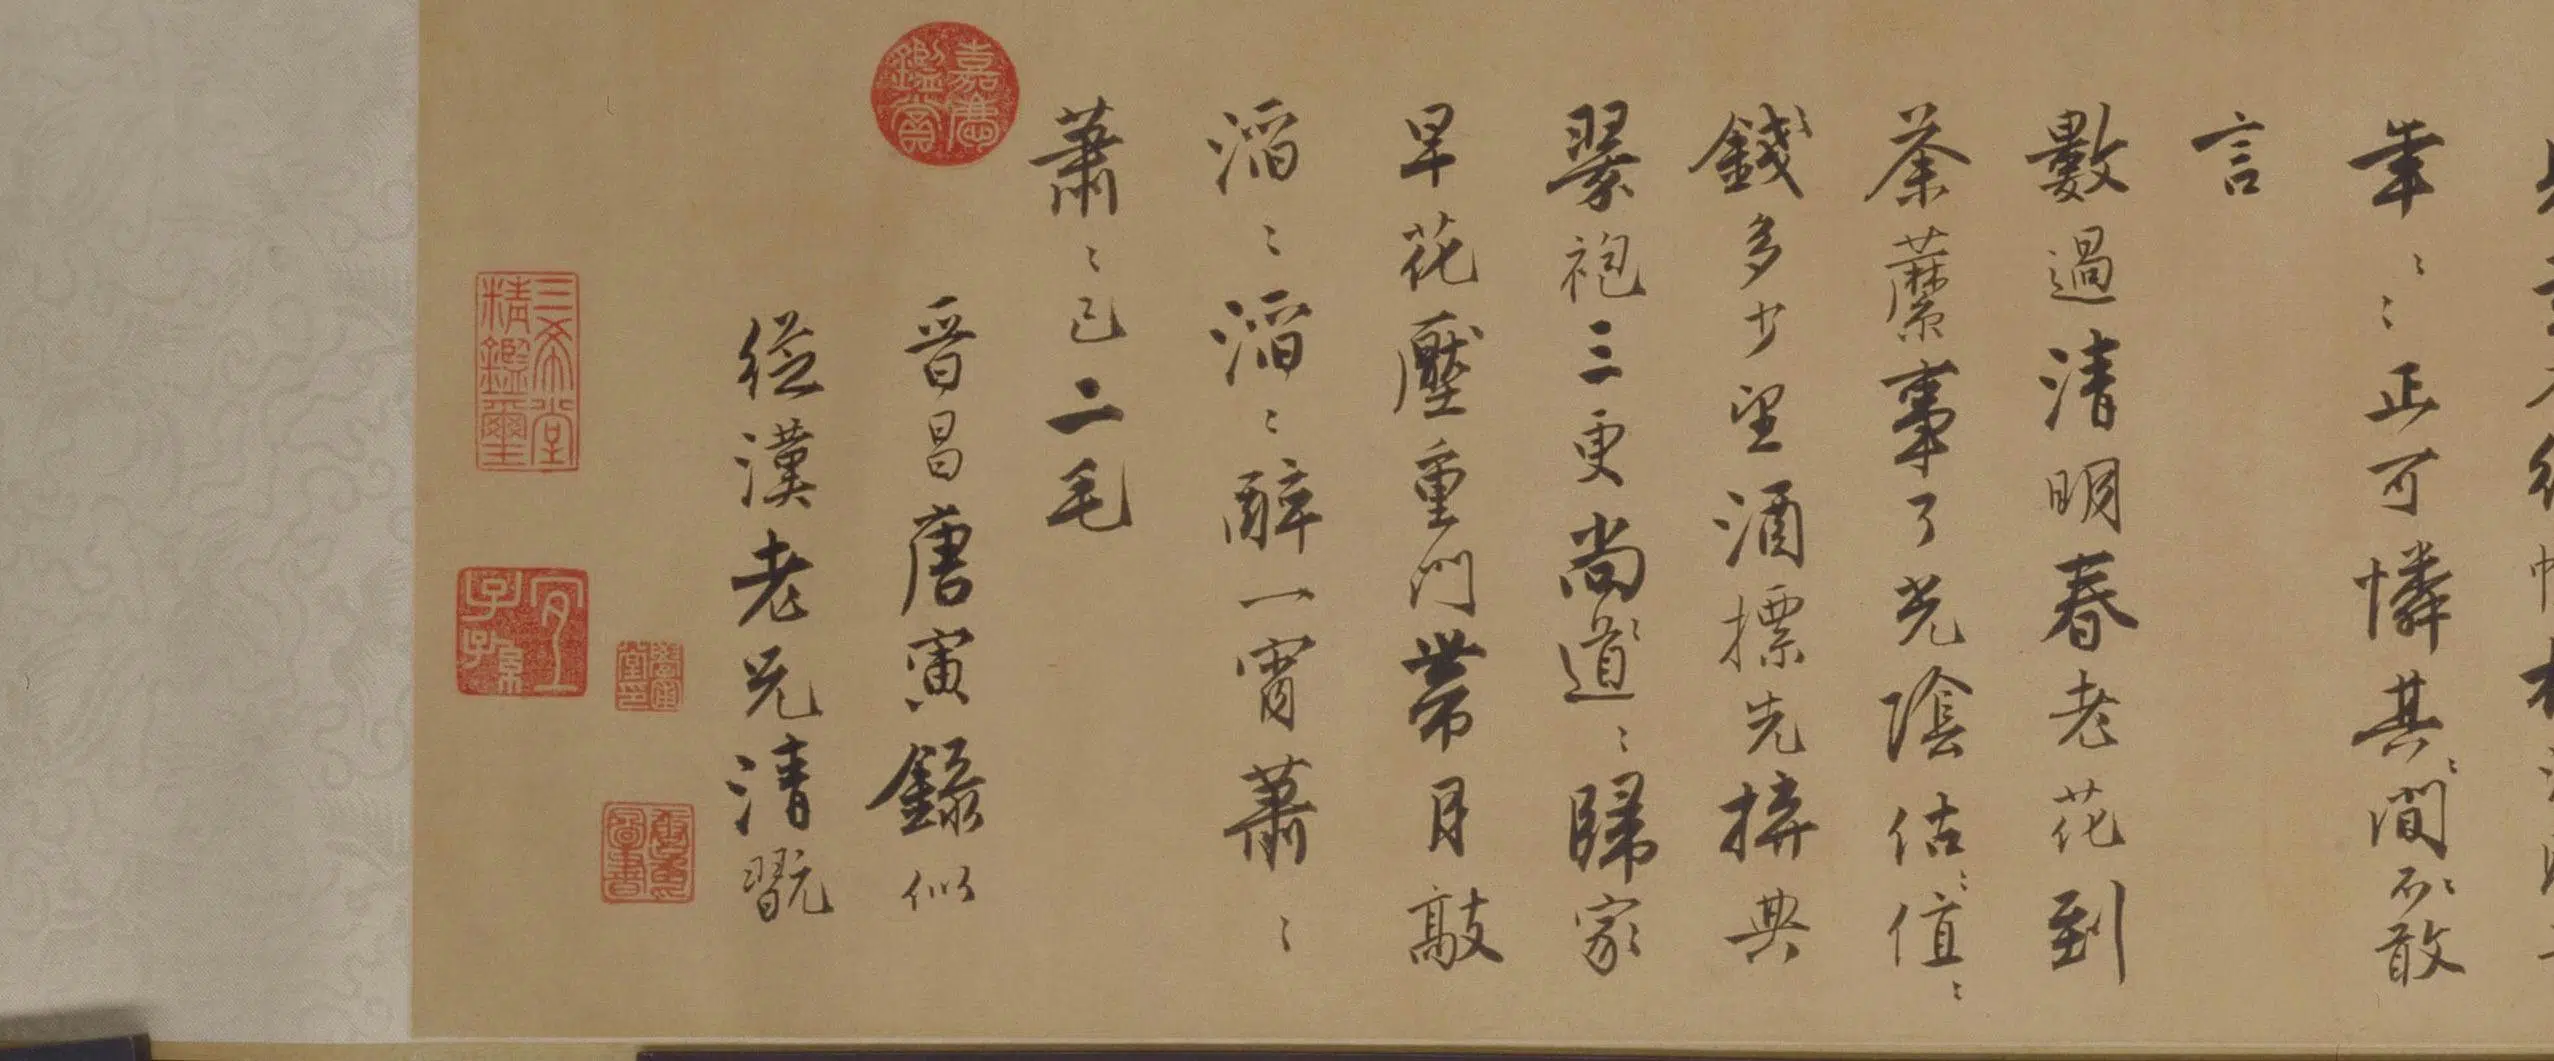 年〻〻正可憐其〻間〻不〻敢
言
數過清明春老花到
荼蘼事了光陰估〻值〻
錢多少望酒標先拚典
翠袍三更尚道〻歸家
早花壓重門帶月敲
滔〻滔〻醉一宵蕭〻
蕭〻已二毛
晉昌唐寅錄似
從漢老兄清翫
嘉慶鑑賞
三希堂精鑑璽
宜子孫